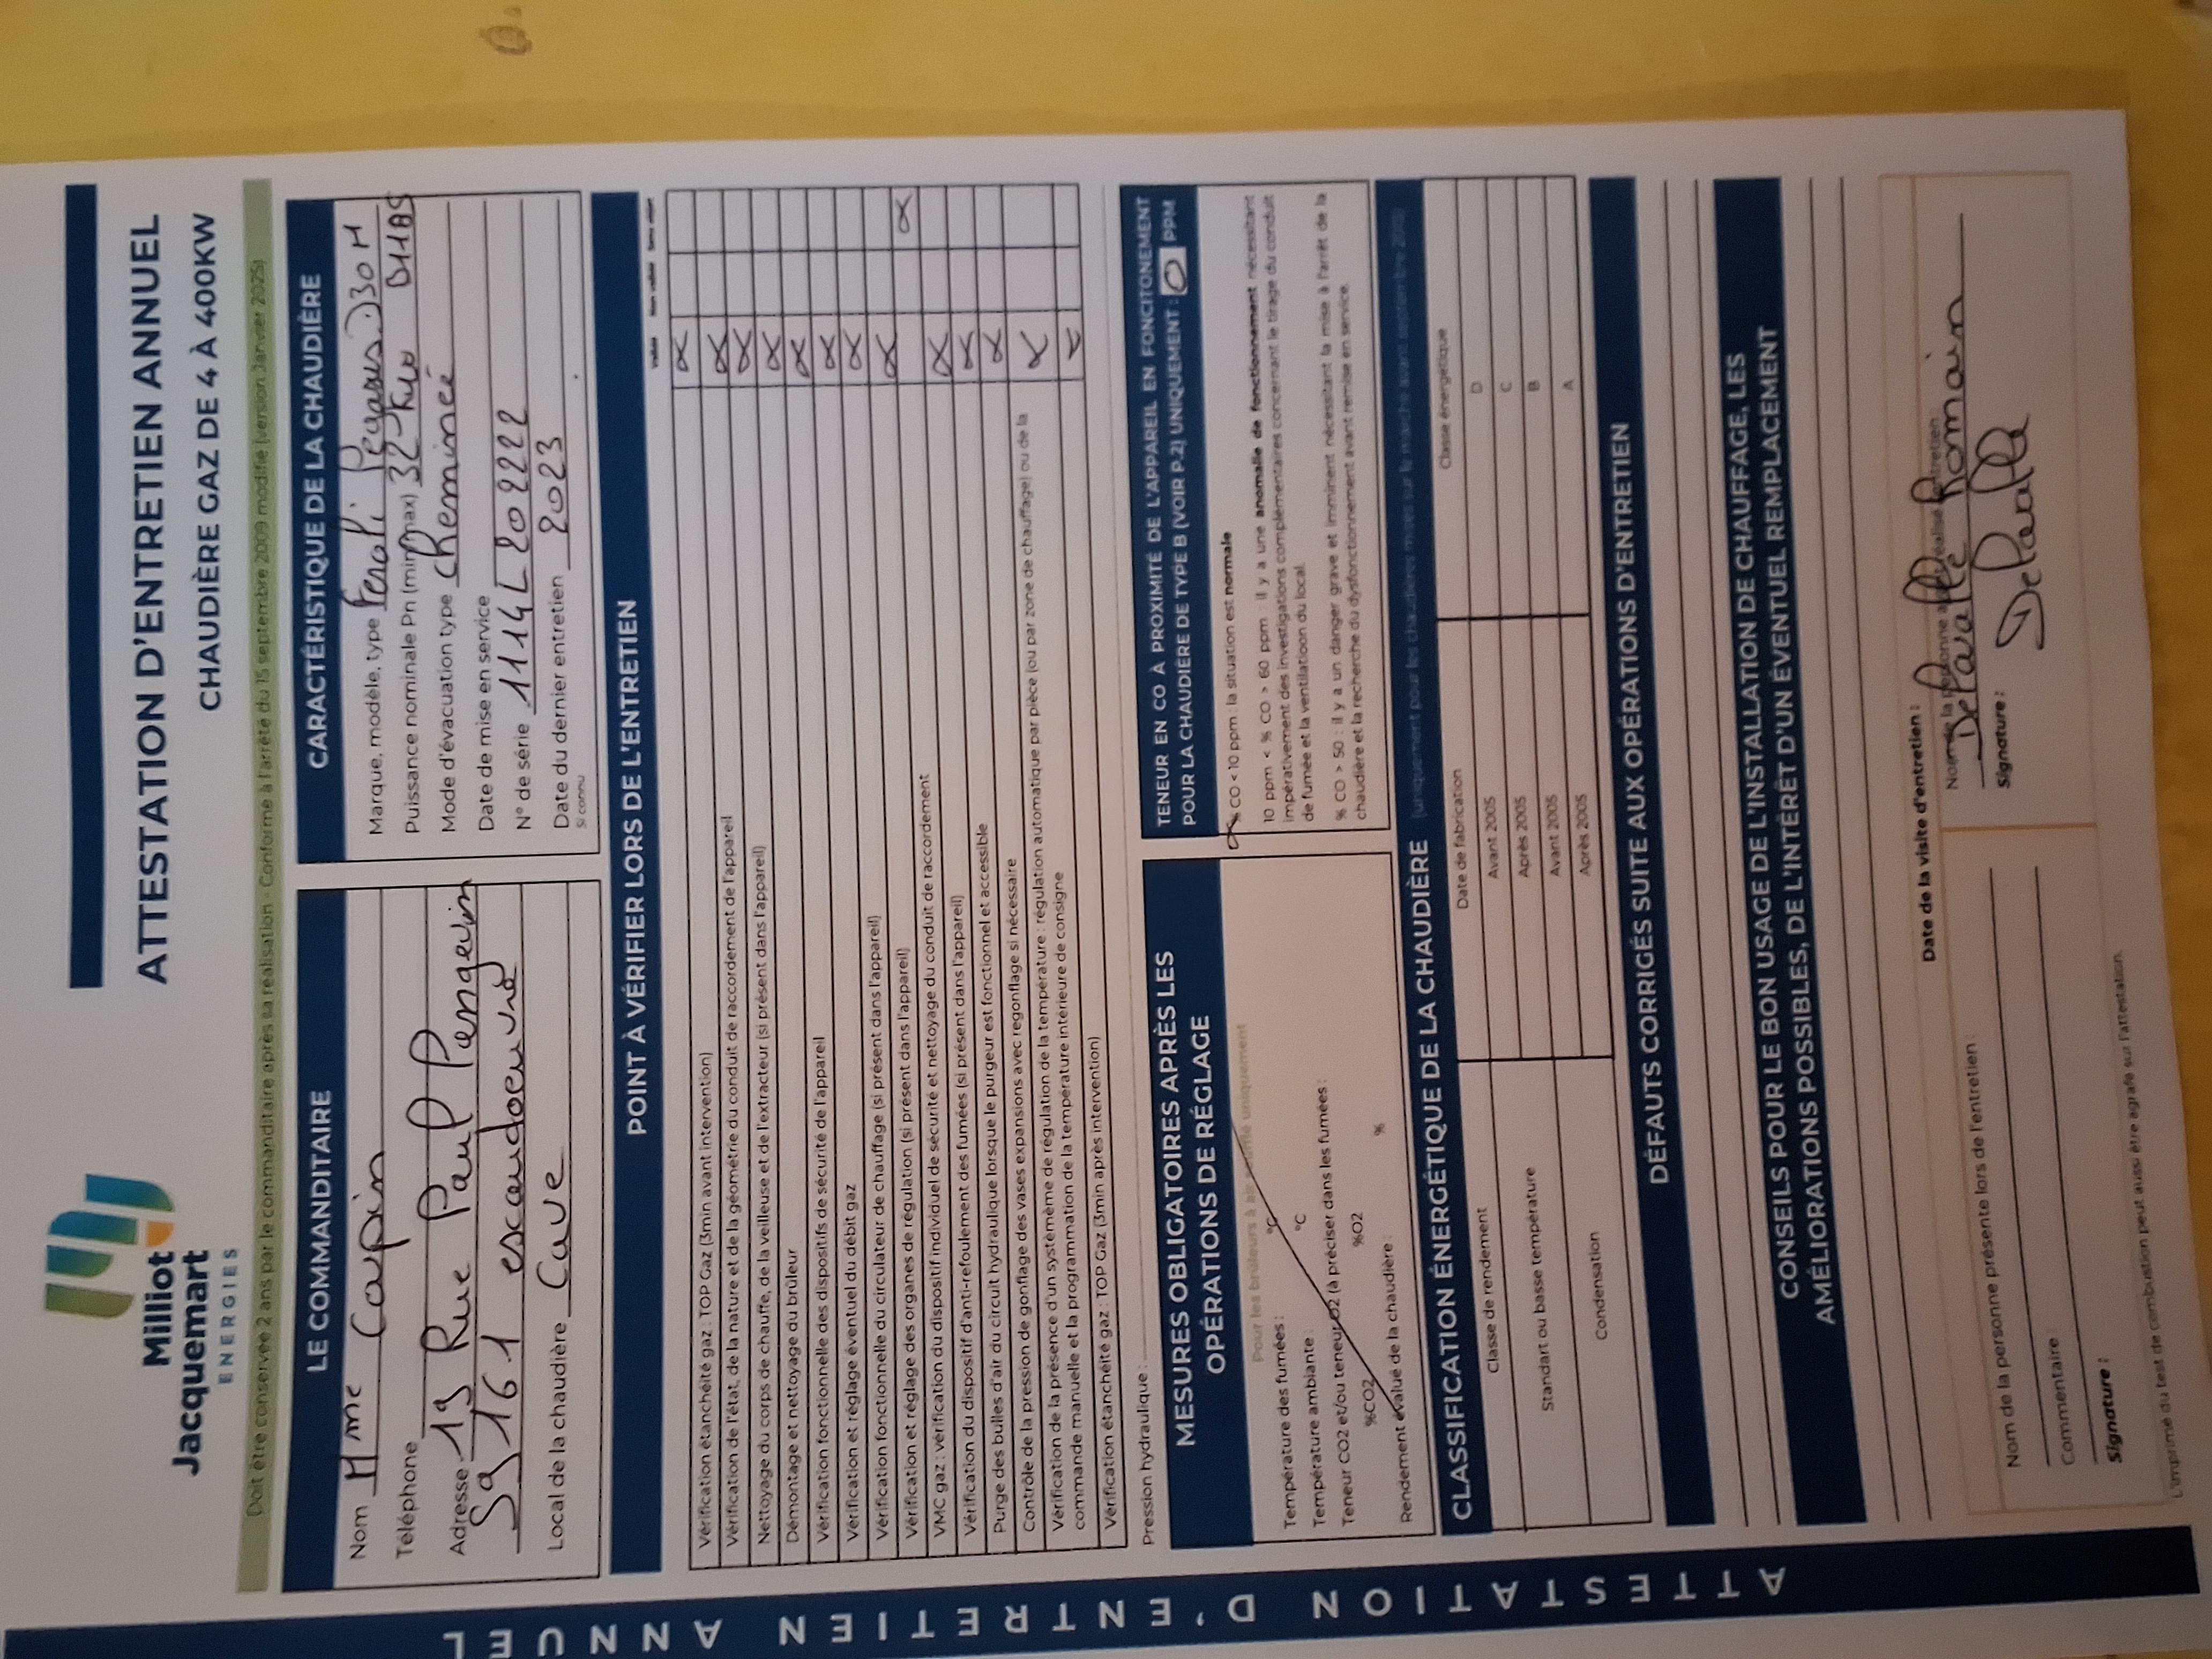 Milliot
Jacquemart
ENERGIES
ATTESTATION D'ENTRETIEN ANNUEL
CHAUDIÈRE GAZ DE 4 À 400KW
Doit être conservée 2 ans par le commanditaire après sa réalisation - Conforme à l'arrêté du 15 septembre 2009 modifié (version Janvier 2025)
LE COMMANDITAIRE
Nom Mme Capin
Téléphone
Adresse 19 Rue Paul Pengevin
59 161 escaudoeuvre
Local de la chaudière Cave
CARACTÉRISTIQUE DE LA CHAUDIÈRE
Marque, modèle, type Feroli Pegasus D 30 H
Puissance nominale Pn (min/max) 32 Kw
Mode d'évacuation type Cheminée
Date de mise en service
N° de série 1114L202222
Date du dernier entretien 2023
Si connu
POINT À VÉRIFIER LORS DE L'ENTRETIEN
Validé Non validé Sans objet
Vérification étanchéité gaz : TOP Gaz (3min avant intervention)
Vérification de l'état, de la nature et de la géométrie du conduit de raccordement de l'appareil
Nettoyage du corps de chauffe, de la veilleuse et de l'extracteur (si présent dans l'appareil)
Démontage et nettoyage du brûleur
Vérification fonctionnelle des dispositifs de sécurité de l'appareil
Vérification et réglage éventuel du débit gaz
Vérification fonctionnelle du circulateur de chauffage (si présent dans l'appareil)
Vérification et réglage des organes de régulation (si présent dans l'appareil)
VMC gaz : vérification du dispositif individuel de sécurité et nettoyage du conduit de raccordement
Vérification du dispositif d'anti-refoulement des fumées (si présent dans l'appareil)
Purge des bulles d'air du circuit hydraulique lorsque le purgeur est fonctionnel et accessible
Contrôle de la pression de gonflage des vases expansions avec regonflage si nécessaire
Vérification de la présence d'un systémème de régulation de la température : régulation automatique par pièce (ou par zone de chauffage) ou de la
commande manuelle et la programmation de la température intérieure de consigne
Vérification étanchéité gaz : TOP Gaz (3min après intervention)
Pression hydraulique :
MESURES OBLIGATOIRES APRÈS LES
OPÉRATIONS DE RÉGLAGE
Pour les brûleurs à air soufflé uniquement
Température des fumées : °C
Température ambiante : °C
Teneur CO2 et/ou teneur O2 (à préciser dans les fumées :
%CO2 %O2
Rendement évalué de la chaudière : %
TENEUR EN CO À PROXIMITÉ DE L'APPAREIL EN FONCITONEMENT
POUR LA CHAUDIÈRE DE TYPE B (VOIR P.2) UNIQUEMENT : 0 PPM
% CO < 10 ppm : la situation est normale
10 ppm < % CO > 60 ppm : il y a une anomalie de fonctionnement nécessitant
impérativement des investigations complémentaires concernant le tirage du conduit
de fumée et la ventilation du local.
% CO > 50 : il y a un danger grave et imminent nécessitant la mise à l'arrêt de la
chaudière et la recherche du dysfonctionnement avant remise en service.
CLASSIFICATION ÉNERGÉTIQUE DE LA CHAUDIÈRE (uniquement pour les chaudières mises sur le marché avant septembre 2015)
Classe de rendement Date de fabrication Classe énergétique
Standart ou basse température Avant 2005 D
Après 2005 C
Condensation Avant 2005 B
Après 2005 A
DÉFAUTS CORRIGÉS SUITE AUX OPÉRATIONS D'ENTRETIEN
CONSEILS POUR LE BON USAGE DE L'INSTALLATION DE CHAUFFAGE, LES
AMÉLIORATIONS POSSIBLES, DE L'INTÉRÊT D'UN ÉVENTUEL REMPLACEMENT
Date de la visite d'entretien :
Nom de la personne présente lors de l'entretien :
Commentaire :
Signature :
Nom de la personne ayant réalisé l'entretien
Delavalle Romain
Signature :
L'imprimé du test de combustion peut aussi être agrafé sur l'attestation.
ATTESTATION D'ENTRETIEN ANNUEL